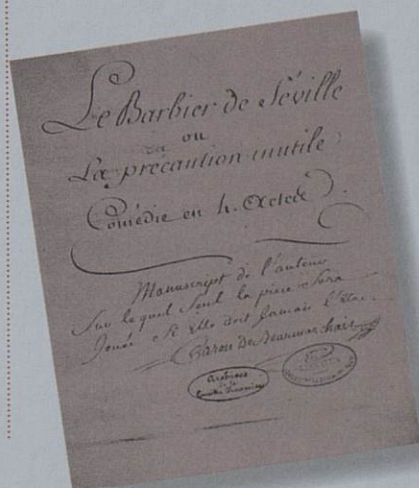 Le Barbier de Séville
ou
La précaution inutile
Comédie en 4. Actes
Manuscript de l'auteur
Sur lequel Seul la piéce Sera
Jouée Si Elle doit Jamais l'Etre.
Caron De Beaumarchais
Archives
de la
Comédie Française